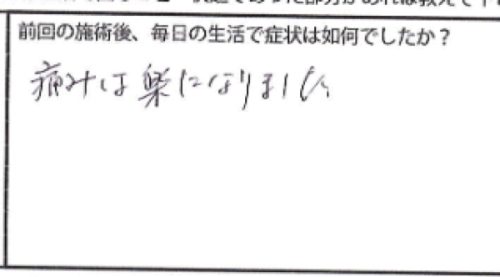 前回の施術後、毎日の生活で症状は如何でしたか？
痛みは楽になりました